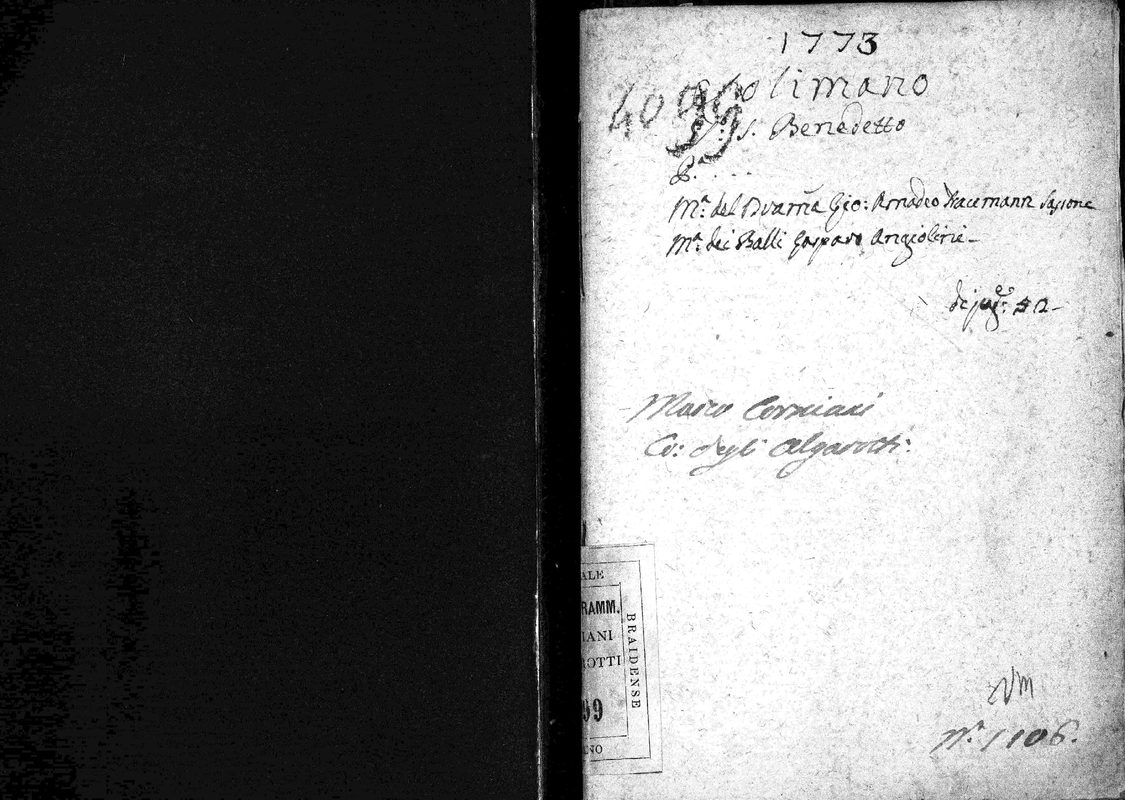 1773
Solimano
4099
S. Benedetto
P.ª ....
M.ª del Dramã Gio: Amadeo Naumann Sassone
M.ª dei Balli Gasparo Angiolini
di pag: 52
Marco Corniani
Co: degli Algarotti:
ALE
RAMM.
IANI
ROTTI
99
NO
BRAIDENSE
N.º 1106.